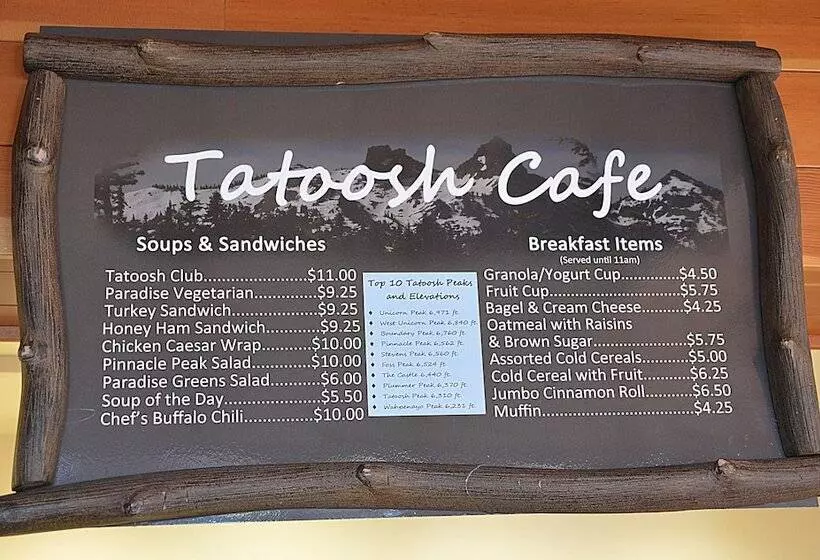 Tatoosh Cafe
Soups & Sandwiches
Tatoosh Club..............................$11.00
Paradise Vegetarian..................$9.25
Turkey Sandwich........................$9.25
Honey Ham Sandwich...............$9.25
Chicken Caesar Wrap..............$10.00
Pinnacle Peak Salad................$10.00
Paradise Greens Salad..............$6.00
Soup of the Day..........................$5.50
Chef's Buffalo Chili....................$10.00
Top 10 Tatoosh Peaks
and Elevations
Unicorn Peak 6,971 ft.
West Unicorn Peak 6,840 ft.
Boundary Peak 6,760 ft.
Pinnacle Peak 6,562 ft.
Stevens Peak 6,560 ft.
Foss Peak 6,524 ft.
The Castle 6,440 ft.
Plummer Peak 6,370 ft.
Tatoosh Peak 6,310 ft.
Wahpenayo Peak 6,231 ft.
Breakfast Items
(Served until 11am)
Granola/Yogurt Cup................$4.50
Fruit Cup....................................$5.75
Bagel & Cream Cheese............$4.25
Oatmeal with Raisins
& Brown Sugar.........................$5.75
Assorted Cold Cereals.............$5.00
Cold Cereal with Fruit.............$6.25
Jumbo Cinnamon Roll.............$6.50
Muffin.........................................$4.25